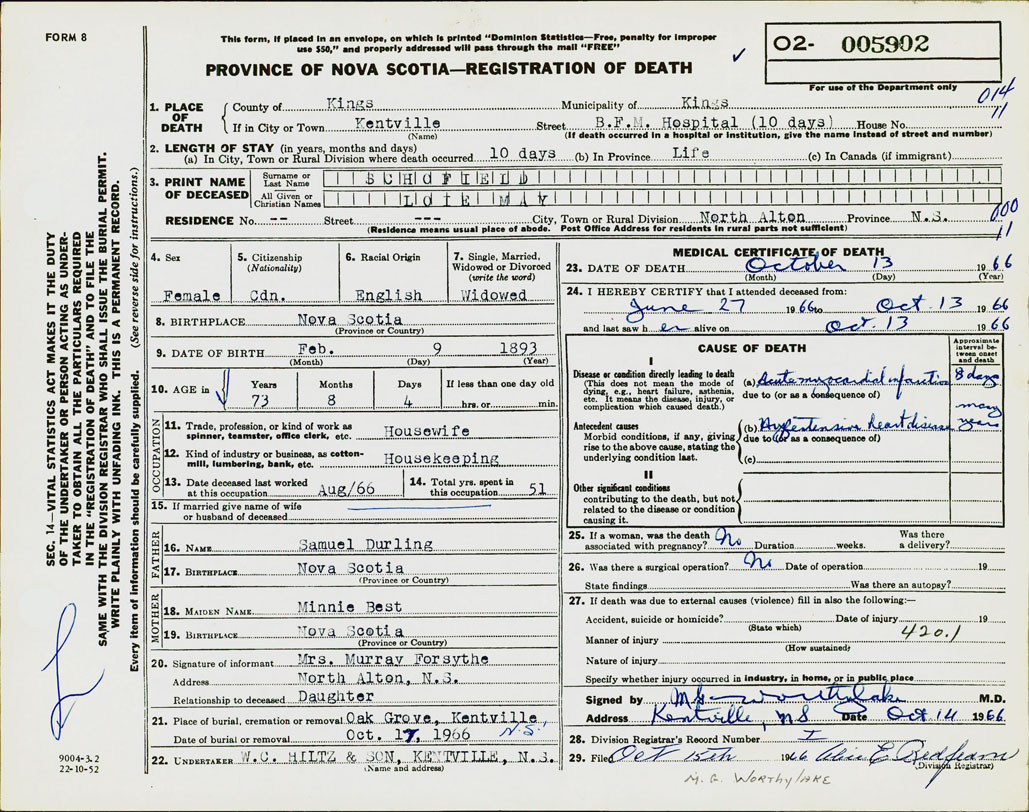 FORM 8
This form, if placed in an envelope, on which is printed "Dominion Statistics—Free, penalty for improper
use $50," and properly addressed will pass through the mail "FREE"
PROVINCE OF NOVA SCOTIA—REGISTRATION OF DEATH
02- 005902
For use of the Department only
014
11
1. PLACE OF DEATH
County of Kings Municipality of Kings
If in City or Town Kentville Street B.F.M. Hospital (10 days) House No.
(Name) (If death occurred in a hospital or institution, give the name instead of street and number)
2. LENGTH OF STAY (in years, months and days)
(a) In City, Town or Rural Division where death occurred 10 days (b) In Province Life (c) In Canada (if immigrant)
3. PRINT NAME OF DECEASED
Surname or Last Name SCHOFIELD
All Given or Christian Names LOIE MAY
000
11
RESIDENCE No. -- Street --- City, Town or Rural Division North Alton Province N.S.
(Residence means usual place of abode. Post Office Address for residents in rural parts not sufficient)
4. Sex
Female
5. Citizenship
(Nationality)
Cdn.
6. Racial Origin
English
7. Single, Married,
Widowed or Divorced
(write the word)
Widowed
8. BIRTHPLACE Nova Scotia
(Province or Country)
9. DATE OF BIRTH Feb. 9 1893
(Month) (Day) (Year)
10. AGE in
Years Months Days If less than one day old
73 8 4 hrs. or min.
OCCUPATION
11. Trade, profession, or kind of work as
spinner, teamster, office clerk, etc. Housewife
12. Kind of industry or business, as cotton-
mill, lumbering, bank, etc. Housekeeping
13. Date deceased last worked
at this occupation Aug/66
14. Total yrs. spent in
this occupation 51
15. If married give name of wife
or husband of deceased
FATHER
16. NAME Samuel Durling
17. BIRTHPLACE Nova Scotia
(Province or Country)
MOTHER
18. MAIDEN NAME Minnie Best
19. BIRTHPLACE Nova Scotia
(Province or Country)
20. Signature of informant Mrs. Murray Forsythe
Address North Alton, N.S.
Relationship to deceased Daughter
21. Place of burial, cremation or removal Oak Grove, Kentville, N.S.
Date of burial or removal Oct. 17, 1966
22. UNDERTAKER W.C. HILTZ & SON, KENTVILLE, N.S.
(Name and address)
MEDICAL CERTIFICATE OF DEATH
23. DATE OF DEATH October 13 1966
(Month) (Day) (Year)
24. I HEREBY CERTIFY that I attended deceased from:
June 27 1966 to Oct. 13 1966
and last saw her alive on Oct. 13 1966
CAUSE OF DEATH
Approximate
interval be-
tween onset
and death
I
Disease or condition directly leading to death
(This does not mean the mode of
dying, e.g., heart failure, asthenia,
etc. It means the disease, injury, or
complication which caused death.)
(a) Acute myocardial infarction 8 days
due to (or as a consequence of)
Antecedent causes
Morbid conditions, if any, giving
rise to the above cause, stating the
underlying condition last.
(b) Hypertensive heart disease many years
due to (or as a consequence of)
(c)
II
Other significant conditions
contributing to the death, but not
related to the disease or condition
causing it.
25. If a woman, was the death
associated with pregnancy? No Duration weeks. Was there
a delivery?
26. Was there a surgical operation? No Date of operation 19
State findings Was there an autopsy?
27. If death was due to external causes (violence) fill in also the following:—
Accident, suicide or homicide? Date of injury 19
(State which)
420.1
Manner of injury
(How sustained)
Nature of injury
Specify whether injury occurred in industry, in home, or in public place
Signed by M G Worthylake M.D.
Address Kentville, NS Date Oct 14 1966
28. Division Registrar's Record Number
29. Filed Oct 15th 1966 Alice E. Redfearn
(Division Registrar)
M. G. WORTHYLAKE
SEC. 14—VITAL STATISTICS ACT MAKES IT THE DUTY
OF THE UNDERTAKER OR PERSON ACTING AS UNDER-
TAKER TO OBTAIN ALL THE PARTICULARS REQUIRED
IN THE "REGISTRATION OF DEATH" AND TO FILE THE
SAME WITH THE DIVISION REGISTRAR WHO SHALL ISSUE THE BURIAL PERMIT.
WRITE PLAINLY WITH UNFADING INK. THIS IS A PERMANENT RECORD.
Every item of information should be carefully supplied. (See reverse side for instructions.)
9004-3.2
22-10-52